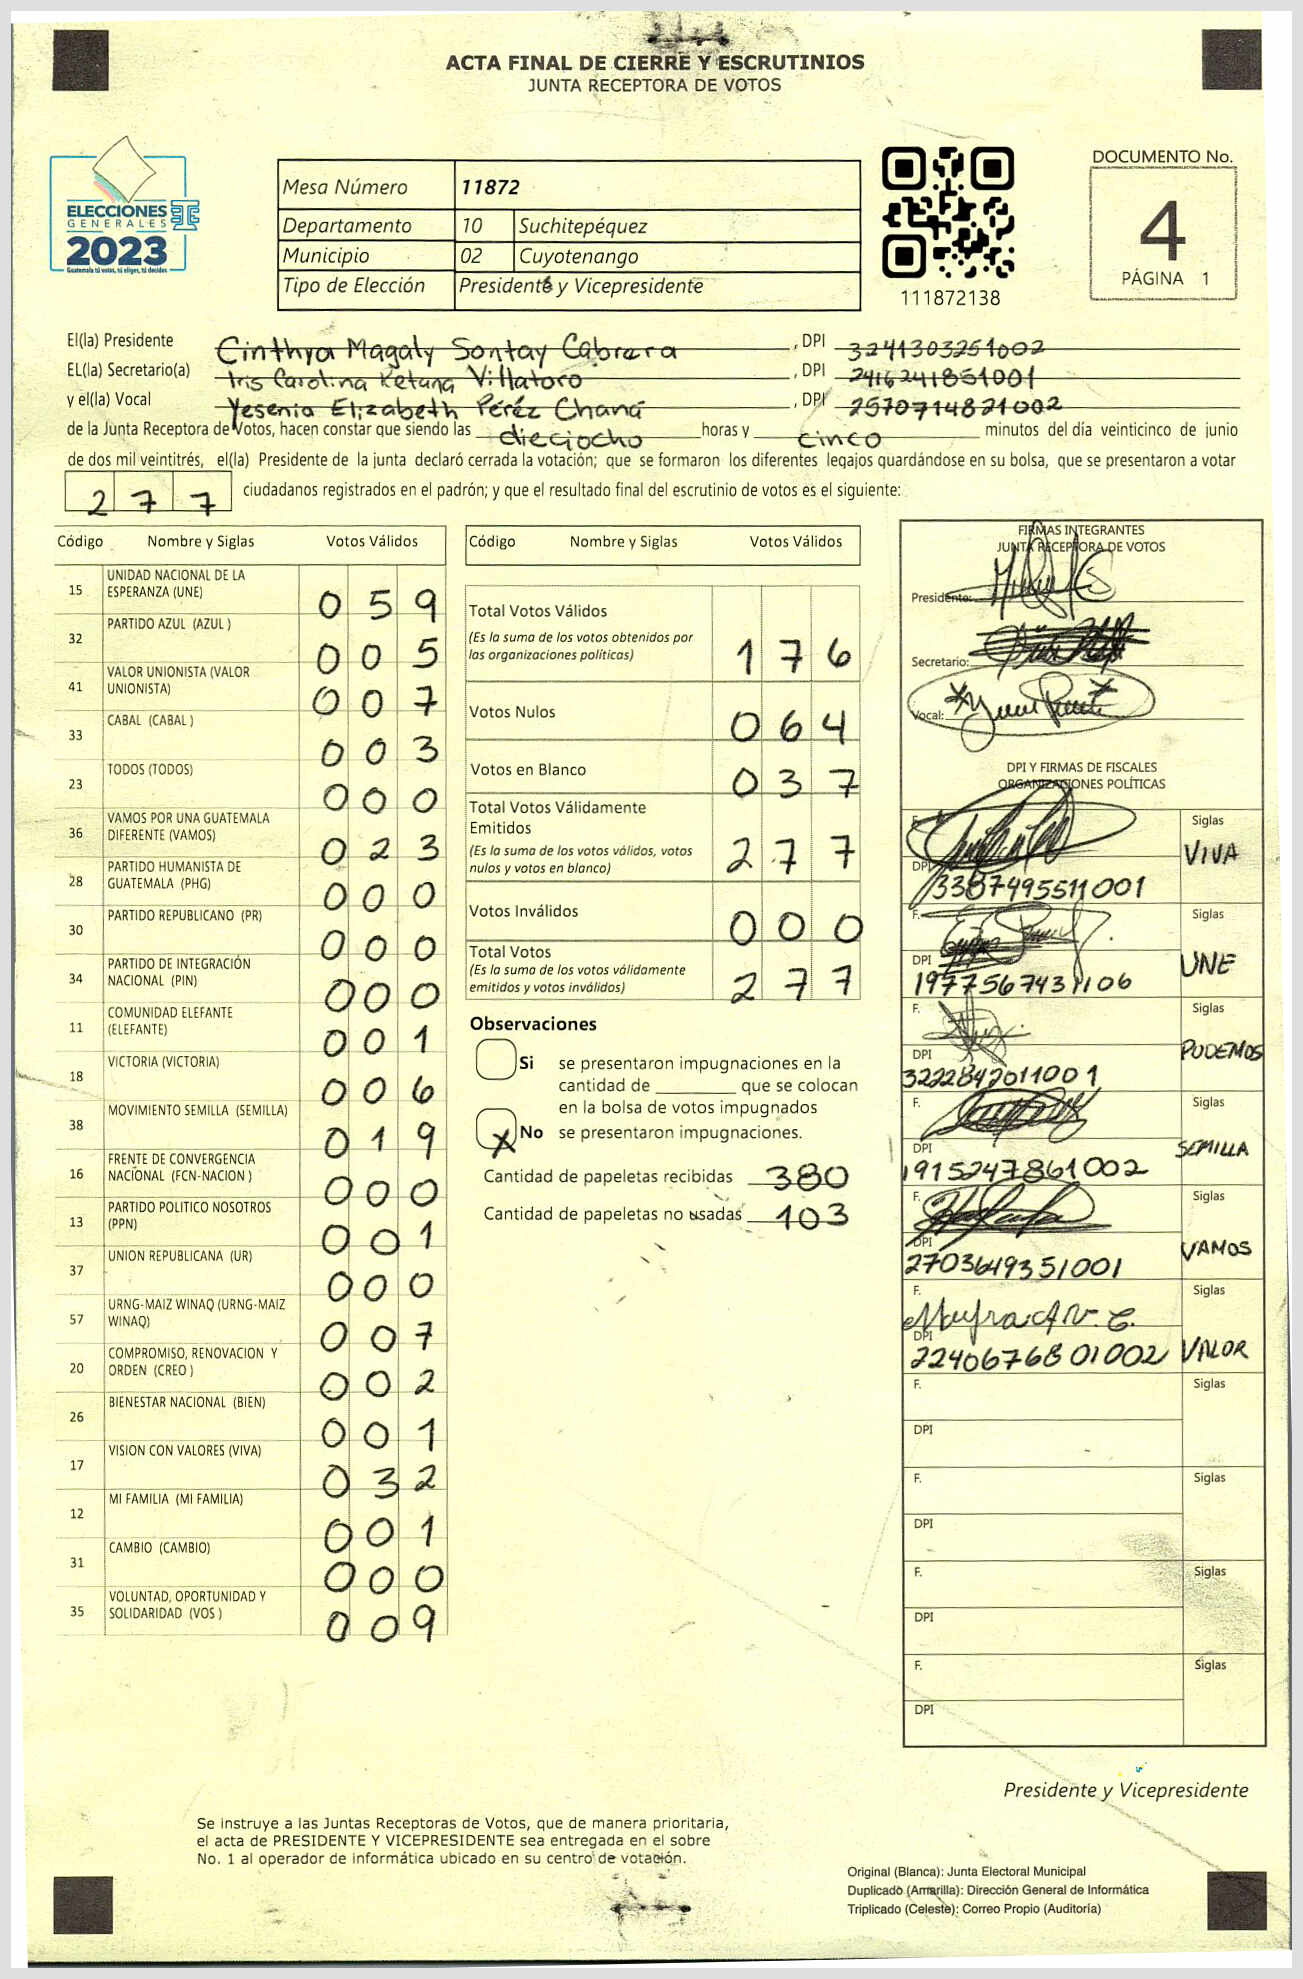 ACTA FINAL DE CIERRE Y ESCRUTINIOS
JUNTA RECEPTORA DE VOTOS
ELECCIONES
GENERALES
2023
Guatemala tú votas, tú eliges, tú decides
Mesa Número 11872
Departamento 10 Suchitepéquez
Municipio 02 Cuyotenango
Tipo de Elección Presidente y Vicepresidente
111872138
DOCUMENTO No.
4
PÁGINA 1
El(la) Presidente Cinthya Magaly Sontay Cabrera , DPI 3241303251002
EL(la) Secretario(a) Iris Carolina Ketana Villatoro , DPI 2416241851001
y el(la) Vocal Yesenia Elizabeth Peréz Chaná , DPI 2570714821002
de la Junta Receptora de Votos, hacen constar que siendo las dieciocho horas y cinco minutos del día veinticinco de junio
de dos mil veintitrés, el(la) Presidente de la junta declaró cerrada la votación; que se formaron los diferentes legajos quardándose en su bolsa, que se presentaron a votar
277 ciudadanos registrados en el padrón; y que el resultado final del escrutinio de votos es el siguiente:
Código Nombre y Siglas Votos Válidos
15 UNIDAD NACIONAL DE LA
ESPERANZA (UNE) 059
32 PARTIDO AZUL (AZUL ) 005
41 VALOR UNIONISTA (VALOR
UNIONISTA) 007
33 CABAL (CABAL ) 003
23 TODOS (TODOS) 000
36 VAMOS POR UNA GUATEMALA
DIFERENTE (VAMOS) 023
28 PARTIDO HUMANISTA DE
GUATEMALA (PHG) 000
30 PARTIDO REPUBLICANO (PR) 000
34 PARTIDO DE INTEGRACIÓN
NACIONAL (PIN) 000
11 COMUNIDAD ELEFANTE
(ELEFANTE) 001
18 VICTORIA (VICTORIA) 006
38 MOVIMIENTO SEMILLA (SEMILLA) 019
16 FRENTE DE CONVERGENCIA
NACIONAL (FCN-NACION ) 000
13 PARTIDO POLITICO NOSOTROS
(PPN) 001
37 UNION REPUBLICANA (UR) 000
57 URNG-MAIZ WINAQ (URNG-MAIZ
WINAQ) 007
20 COMPROMISO, RENOVACION Y
ORDEN (CREO ) 002
26 BIENESTAR NACIONAL (BIEN) 001
17 VISION CON VALORES (VIVA) 032
12 MI FAMILIA (MI FAMILIA) 001
31 CAMBIO (CAMBIO) 000
35 VOLUNTAD, OPORTUNIDAD Y
SOLIDARIDAD (VOS ) 009
Código Nombre y Siglas Votos Válidos
Total Votos Válidos
(Es la suma de los votos obtenidos por
las organizaciones políticas) 176
Votos Nulos 064
Votos en Blanco 037
Total Votos Válidamente
Emitidos
(Es la suma de los votos válidos, votos
nulos y votos en blanco) 277
Votos Inválidos 000
Total Votos
(Es la suma de los votos válidamente
emitidos y votos inválidos) 277
Observaciones
Si se presentaron impugnaciones en la
cantidad de ________ que se colocan
en la bolsa de votos impugnados
X No se presentaron impugnaciones.
Cantidad de papeletas recibidas 380
Cantidad de papeletas no usadas 103
FIRMAS INTEGRANTES
JUNTA RECEPTORA DE VOTOS
Presidente:
Secretario:
Vocal:
DPI Y FIRMAS DE FISCALES
ORGANIZACIONES POLÍTICAS
F. Siglas
DPI 3387495511001 VIVA
F. Siglas
DPI 1977567431106 UNE
F. Siglas
DPI 3222842011001 PODEMOS
F. Siglas
DPI 1915247861002 SEMILLA
F. Siglas
DPI 2703649351001 VAMOS
F. Siglas
DPI 2240676801002 VALOR
F. Siglas
DPI
F. Siglas
DPI
F. Siglas
DPI
F. Siglas
DPI
Presidente y Vicepresidente
Se instruye a las Juntas Receptoras de Votos, que de manera prioritaria,
el acta de PRESIDENTE Y VICEPRESIDENTE sea entregada en el sobre
No. 1 al operador de informática ubicado en su centro de votación.
Original (Blanca): Junta Electoral Municipal
Duplicado (Amarilla): Dirección General de Informática
Triplicado (Celeste): Correo Propio (Auditoría)